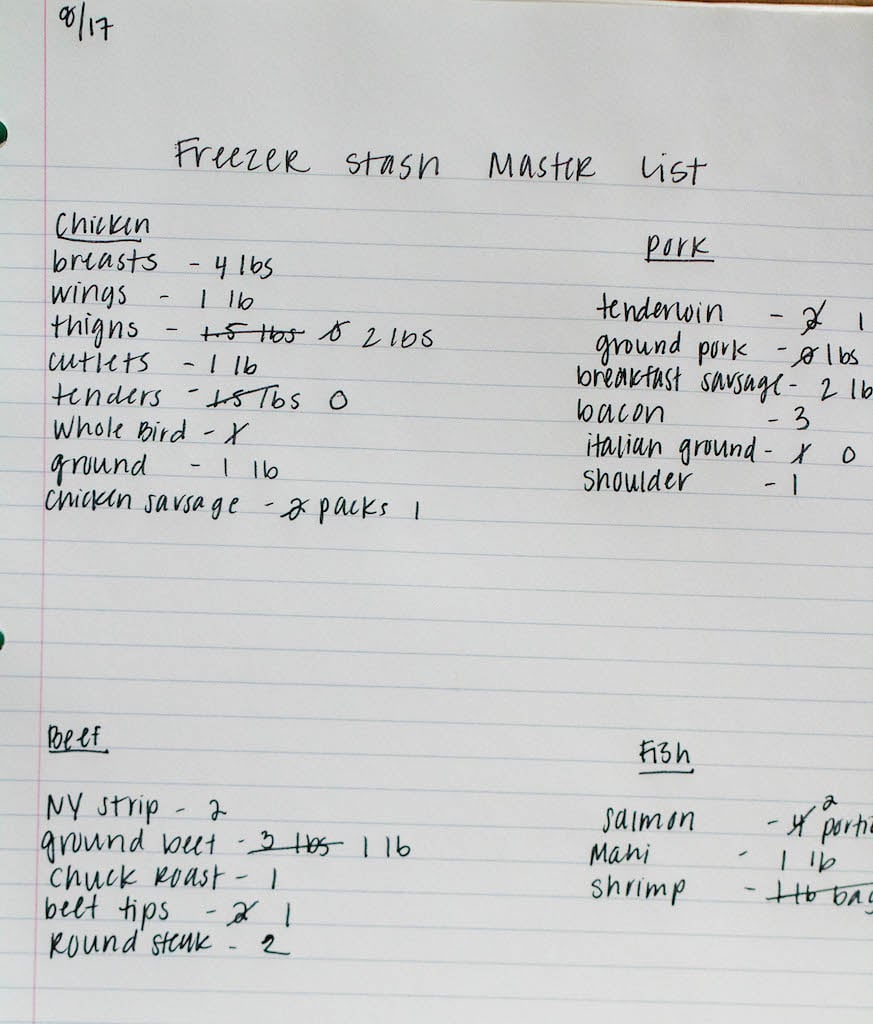 8/17
Freezer stash Master list
Chicken
breasts - 4 lbs
wings - 1 lb
thighs - 1.5 lbs 2 lbs
cutlets - 1 lb
tenders - 1.5 lbs 0
Whole Bird -
ground - 1 lb
chicken sausage - 2 packs 1
Pork
tenderloin - 2 1
ground pork - lbs
breakfast sausage - 2 lb
bacon - 3
italian ground - 0
shoulder - 1
Beef
NY strip - 2
ground beef - 3 lbs 1 lb
Chuck Roast - 1
beef tips - 2 1
Round steak - 2
Fish
salmon - 4 2 porti
Mahi - 1 lb
shrimp - 1 lb bag